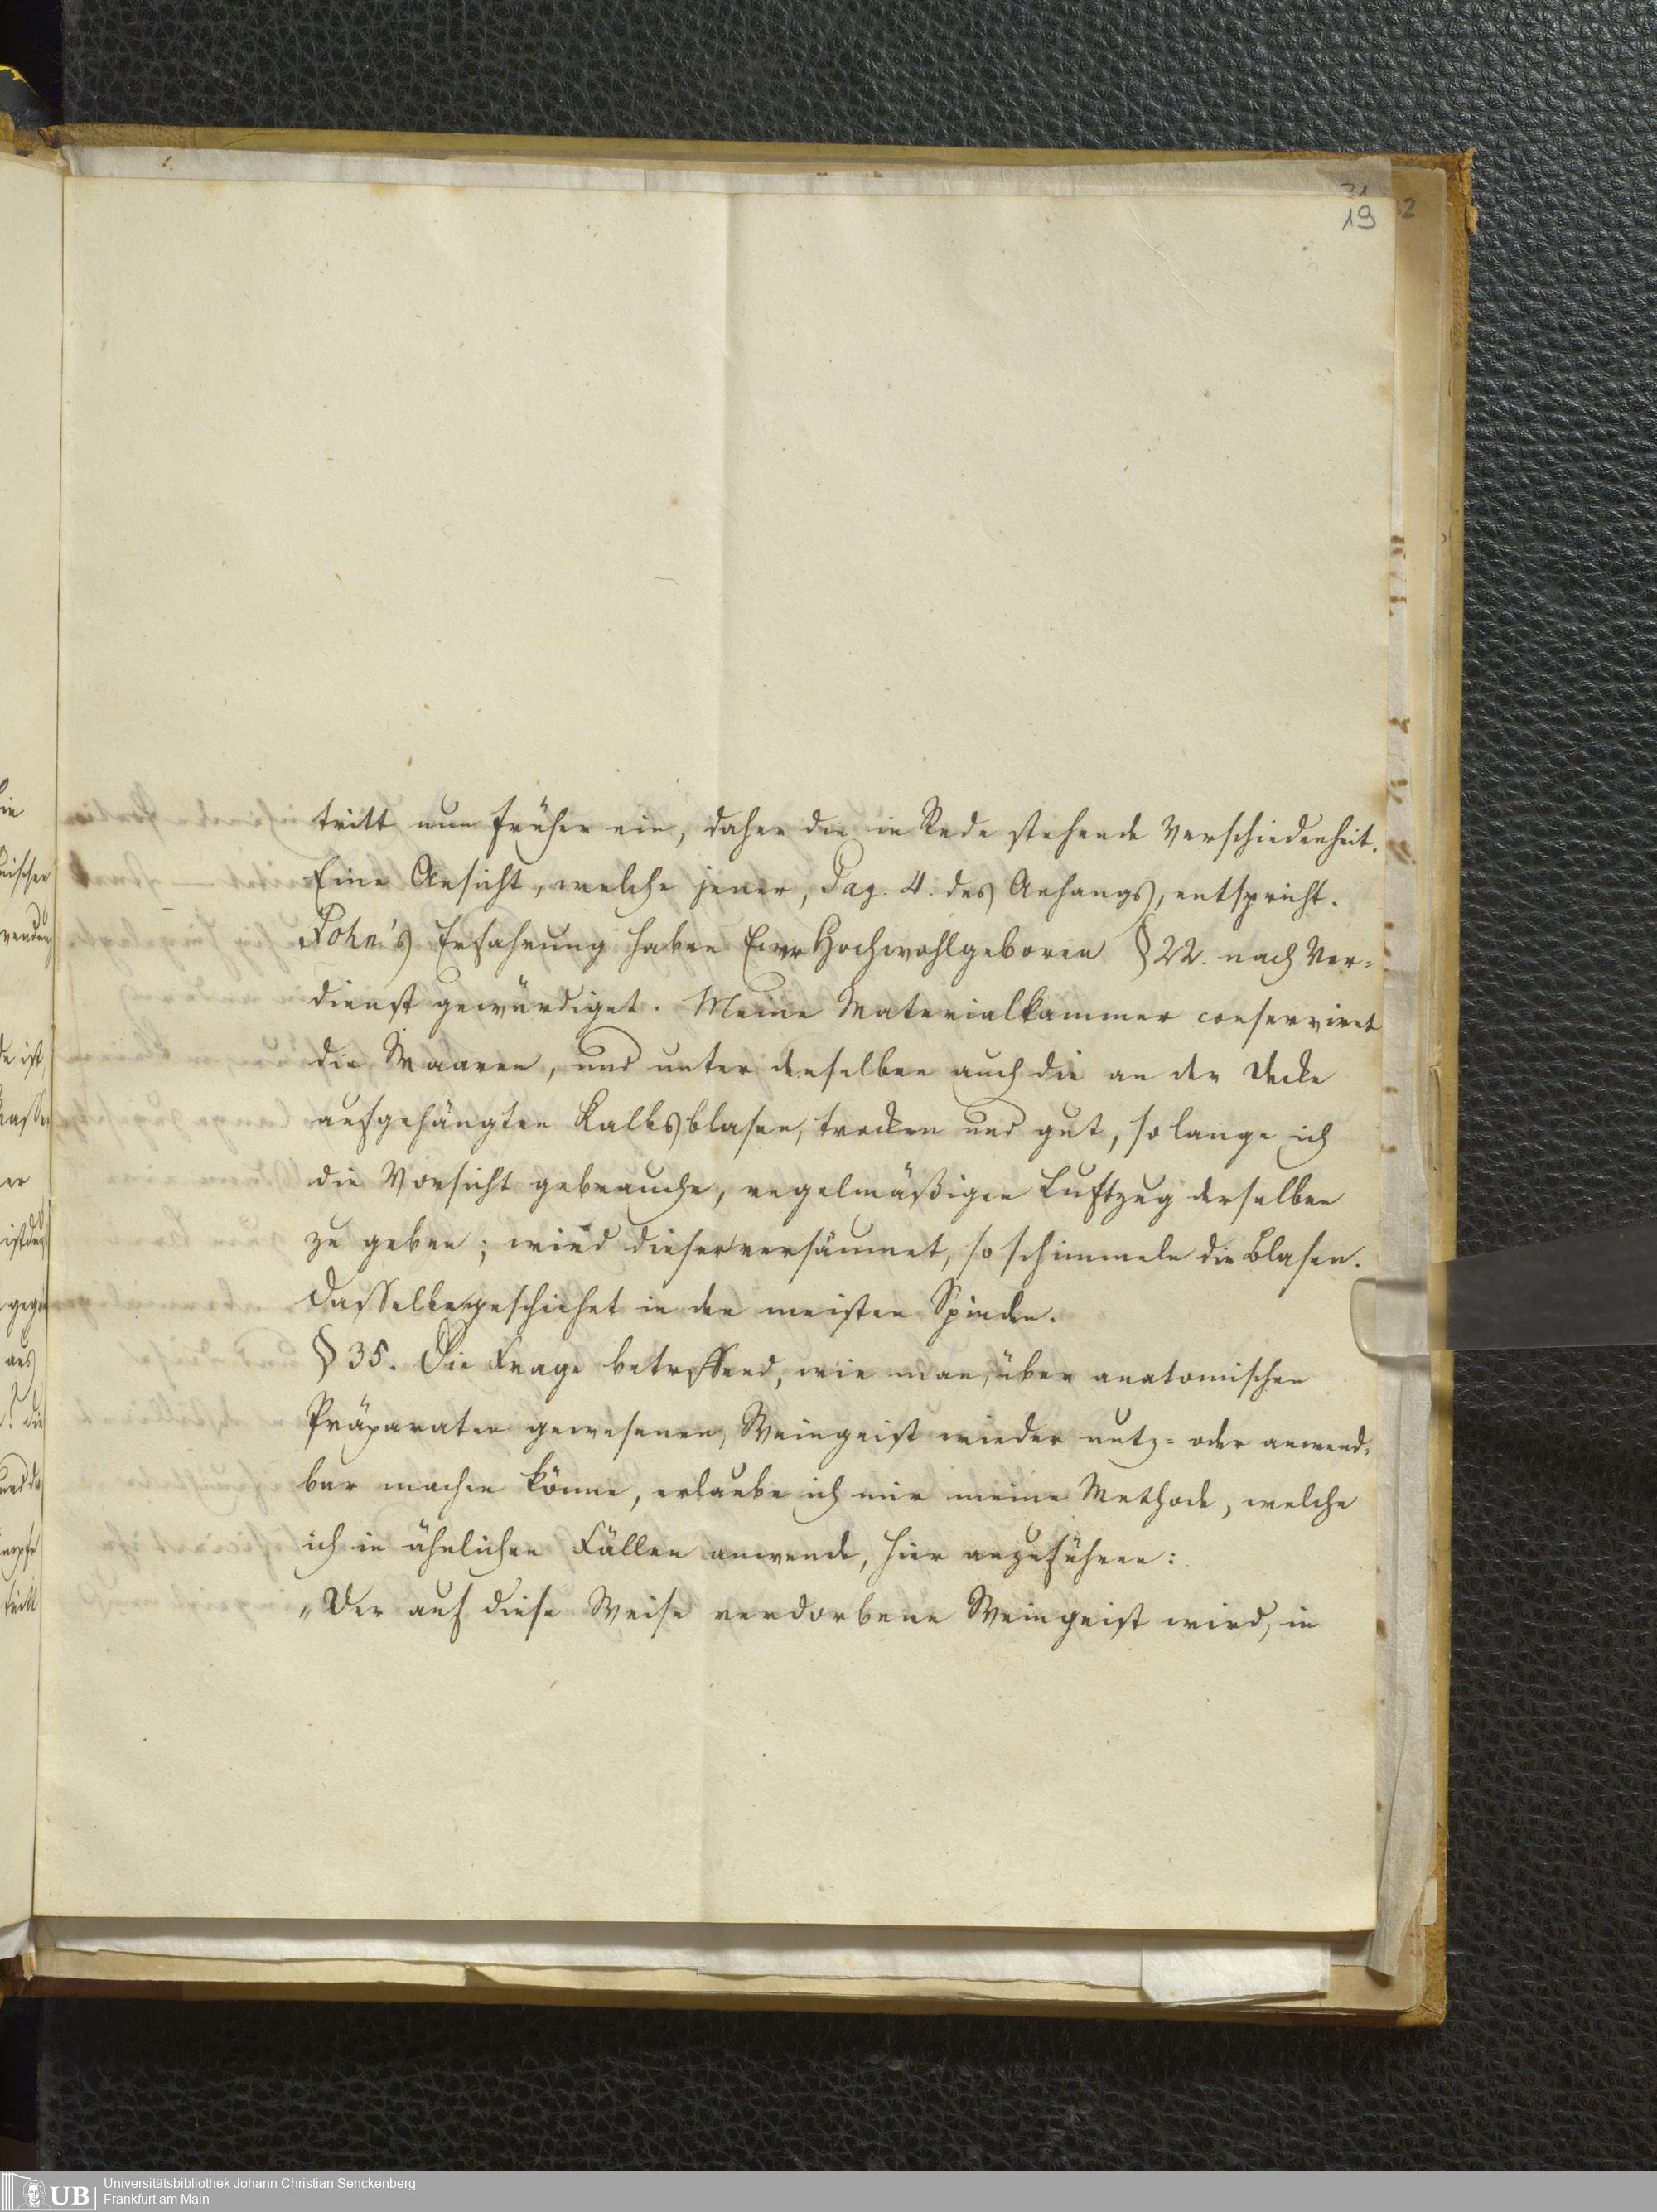 31
19
32
tritt nun früher ein, daher die in Rede stehende Verschiedenheit.
Eine Ansicht, welche jener, Pag. 4. des Anhangs, entspricht.
Pohn's Erfahrung haben Ewr Hochwohlgeboren § 22. nach Ver=
dienst gewürdiget. Meine Materialkammer conserviret
die Waaren, und unter denselben auch die an der Decke
aufgehängten Kalbsblasen, trocken und gut, so lange ich
die Vorsicht gebrauche, regelmäßigen Luftzug derselben
zu geben; wird dieser versäumet, so schimmeln die Blasen.
Dasselbe geschiehet in den meisten Spinden.
§ 35. Die Frage betreffend, wie man, über anatomischen
Präparaten gewesenen, Weingeist wieder nutz= oder anwend=
bar machen könne, erlaube ich mir meine Methode, welche
ich in ähnlichen Fällen anwende, hier anzuführen:
„Der auf diese Weise verdorbene Weingeist wird, in
UB
Universitätsbibliothek Johann Christian Senckenberg
Frankfurt am Main